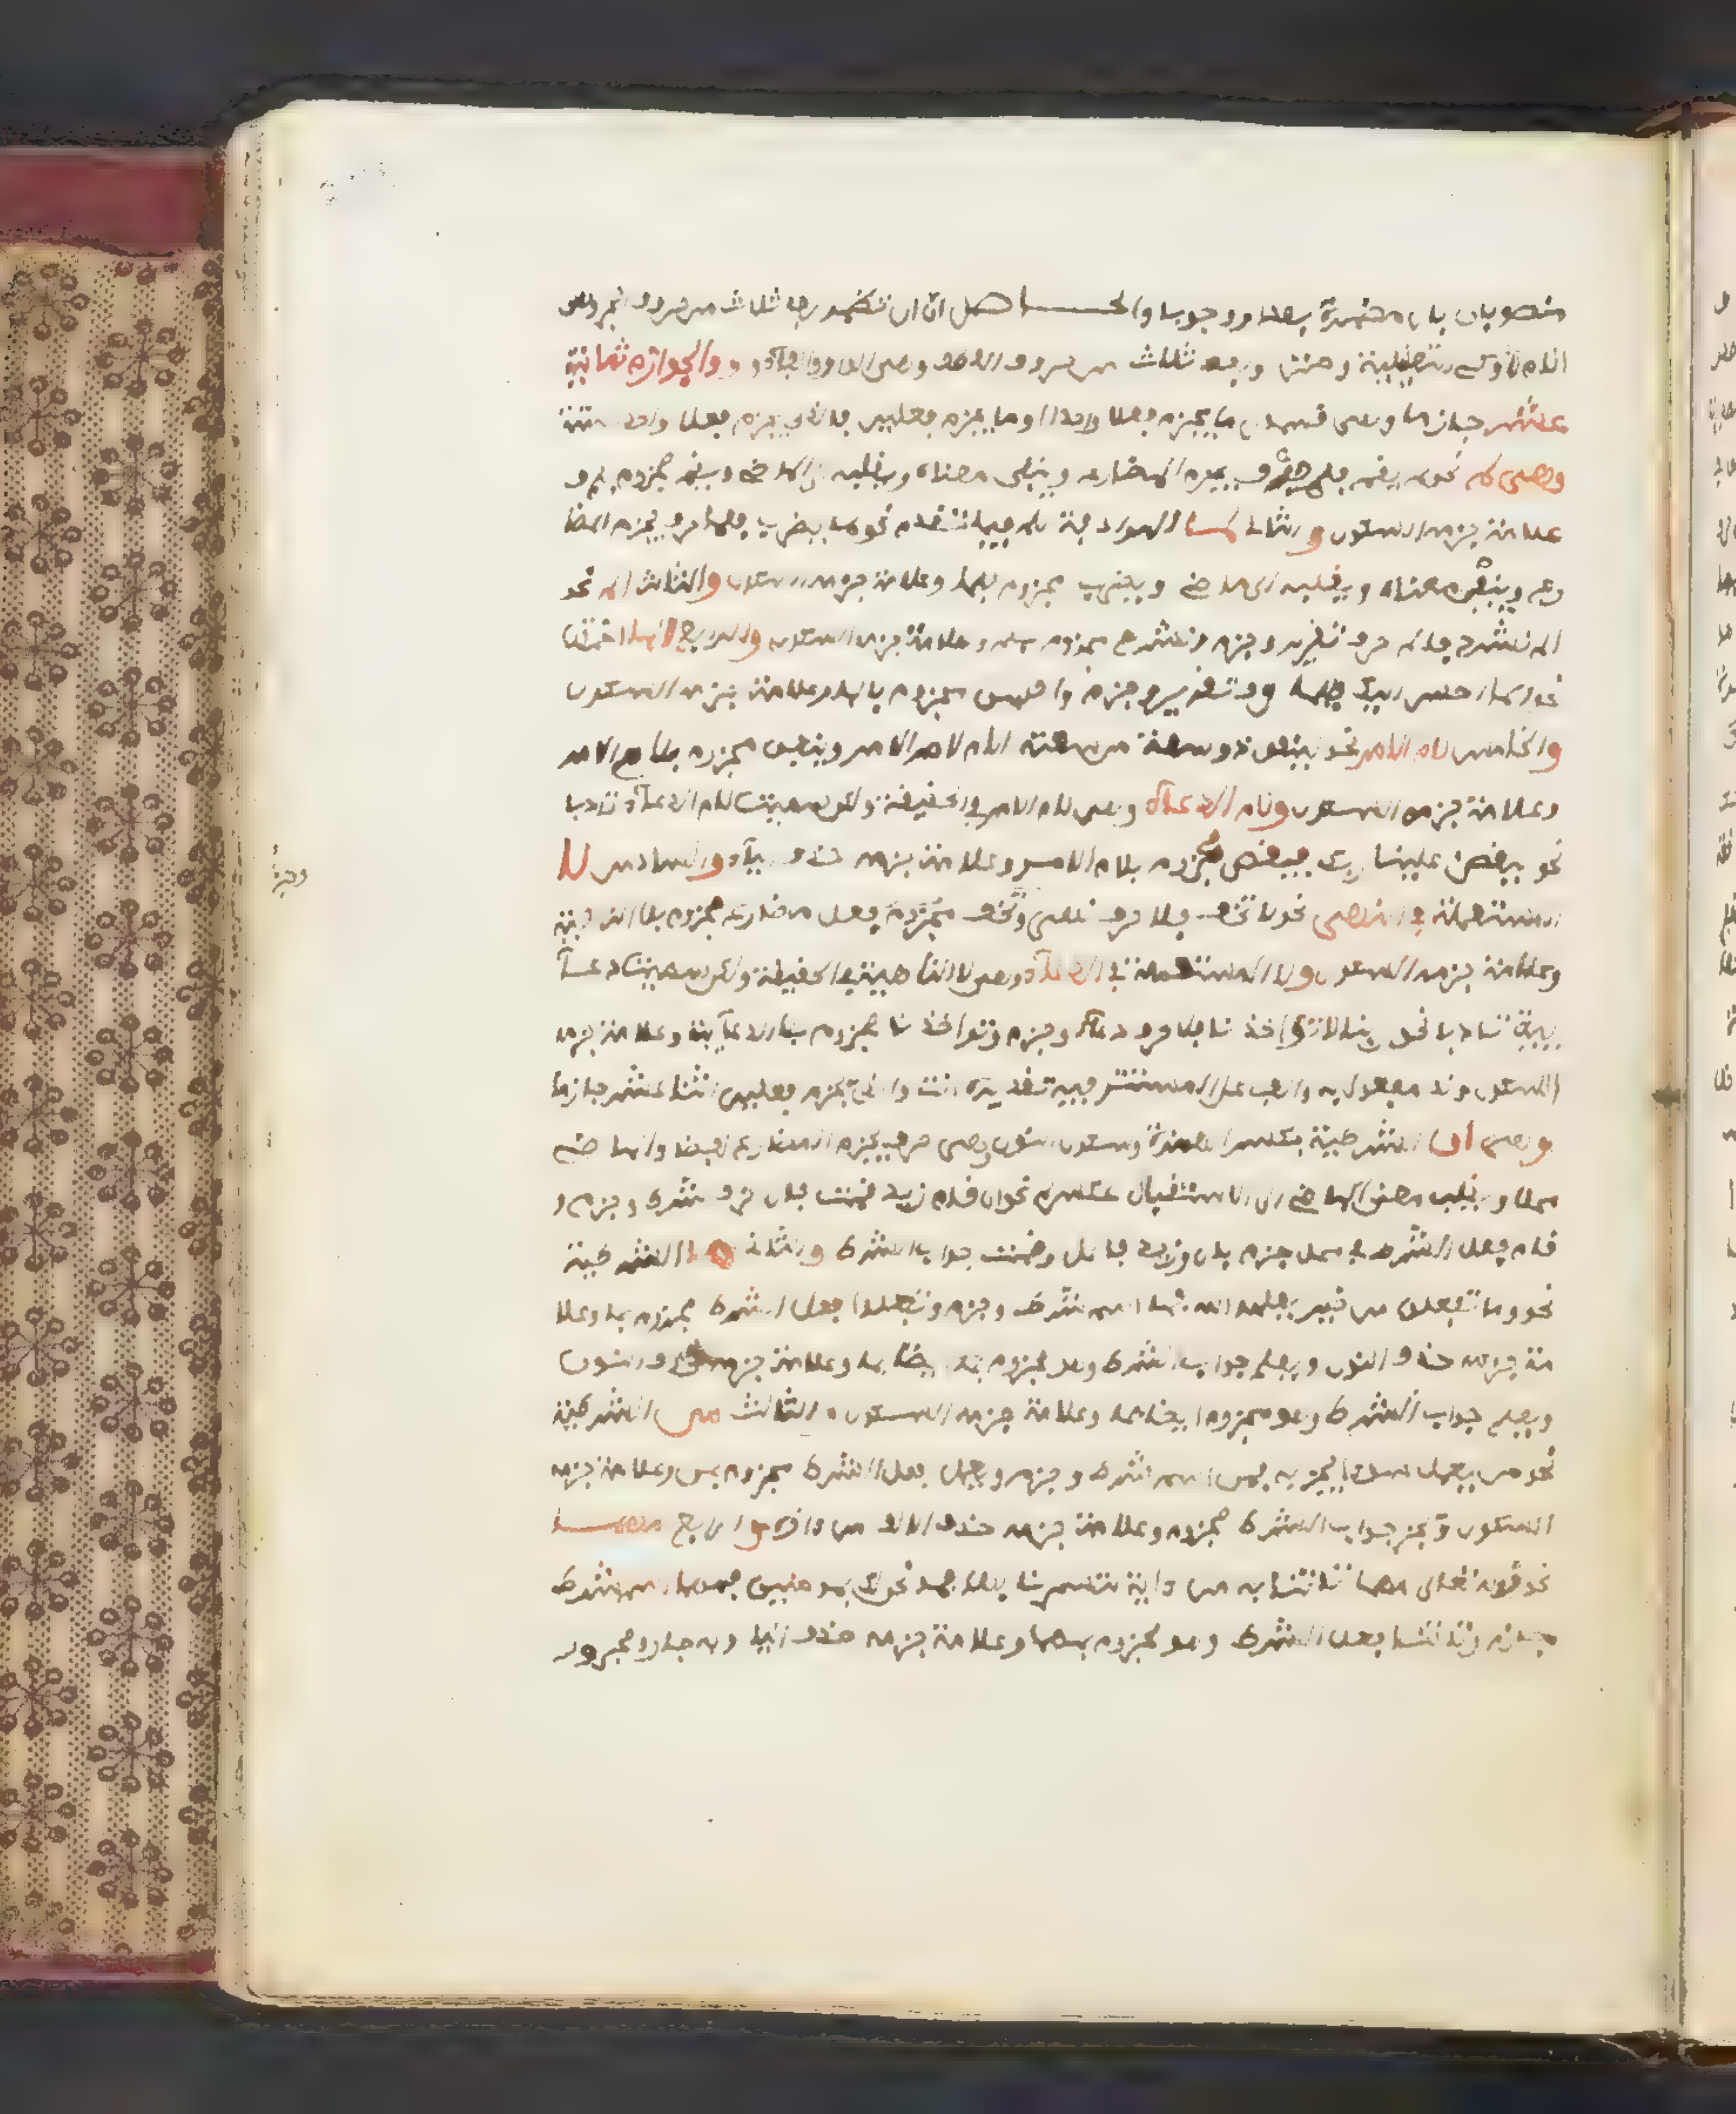 منصوبان بان مضمرة بعدها وجوبا والحاصل ان ان تضمر بعد ثلاث من حروف الجر وهى
اللام وكى التعليلية وحتى وبعد ثلاث من حروف العطف وهى الفا والواو واو والجوازم ثمانية
عشر جازما وهى قسمان ما يجزم فعلا واحدا وما يجزم فعلين فالذى يجزم فعلا واحد ستة
وهى لم نحو لم يقم فلم حرف يجزم المضارع وينفى معناه ويقلبه الى الماضى ويقم مجزوم بلم و
علامة جزمه السكون والثانى لما المرادفة للم فيما تقدم نحو لما يضرب فلما حرف يجزم المضا
رع وينفى معناه ويقلبه الى الماضى ويضرب مجزوم بلما وعلامة جزمه السكون والثالث الم نحو
الم نشرح فالم حرف تقرير وجزم ونشرح مجزوم بها وعلامة جزمه السكون والرابع الما اختها
نحو الما احسن اليك فالما حرف تقرير وجزم واحسن مجزوم بالما وعلامة جزمه السكون
والخامس لام الامر نحو لينفق ذو سعة من سعته اللام لام الامر وينفق مجزوم بلام الامر
وعلامة جزمه السكون ولام الدعاء وهى لام الامر فى الحقيقة ولكن سميت لام الدعاء تادبا
نحو ليقض علينا ربك فيقض مجزوم بلام الامر وعلامة جزمه حذف الياء والسادس لا
المستعملة فى النهى نحو لا تخف فلا حرف نهى وتخف مجزوم فعل مضارع مجزوم بلا الناهية
وعلامة جزمه السكون ولا المستعملة فى الدعاء وهى لا الناهية فى الحقيقة ولكن سميت دعا
ئية تادبا نحو ربنا لا تؤاخذنا فلا حرف دعاء وجزم وتؤاخذنا مجزوم بلا الدعائية وعلامة جزمه
السكون ونا مفعول به والفاعل مستتر فيه تقديره انت والذى يجزم فعلين اثنا عشر جازما
وهى ان الشرطية بكسر الهمزة وسكون النون وهى حرف يجزم المضارع لفظا والماضى
محلا ويقلب معنى الماضى الى الاستقبال عكس لم نحو ان قام زيد قمت فان حرف شرط وجزم و
قام فعل الشرط فى محل جزم بان وزيد فاعل وقمت جواب الشرط والثانى ما الشرطية
نحو وما تفعلوا من خير يعلمه الله فما اسم شرط وجزم وتفعلوا فعل الشرط مجزوم بما وعلا
مة جزمه حذف النون ويعلم جواب الشرط وهو مجزوم ايضا بما وعلامة جزمه حذف النون
ويعلم جواب الشرط وهو مجزوم ايضا بما وعلامة جزمه السكون والثالث من الشرطية
نحو من يعمل سوءا يجز به فمن اسم شرط وجزم ويعمل فعل الشرط مجزوم بمن وعلامة جزمه
السكون ويجز جواب الشرط مجزوم وعلامة جزمه حذف الالف من والرابع مهما
نحو قوله تعالى مهما تاتنا به من داية لتسحرنا بها فما نحن لك بمومنين فمهما اسم شرط
جازم وتاتنا فعل الشرط وهو مجزوم بمهما وعلامة جزمه حذف اليا وبه جار ومجرور